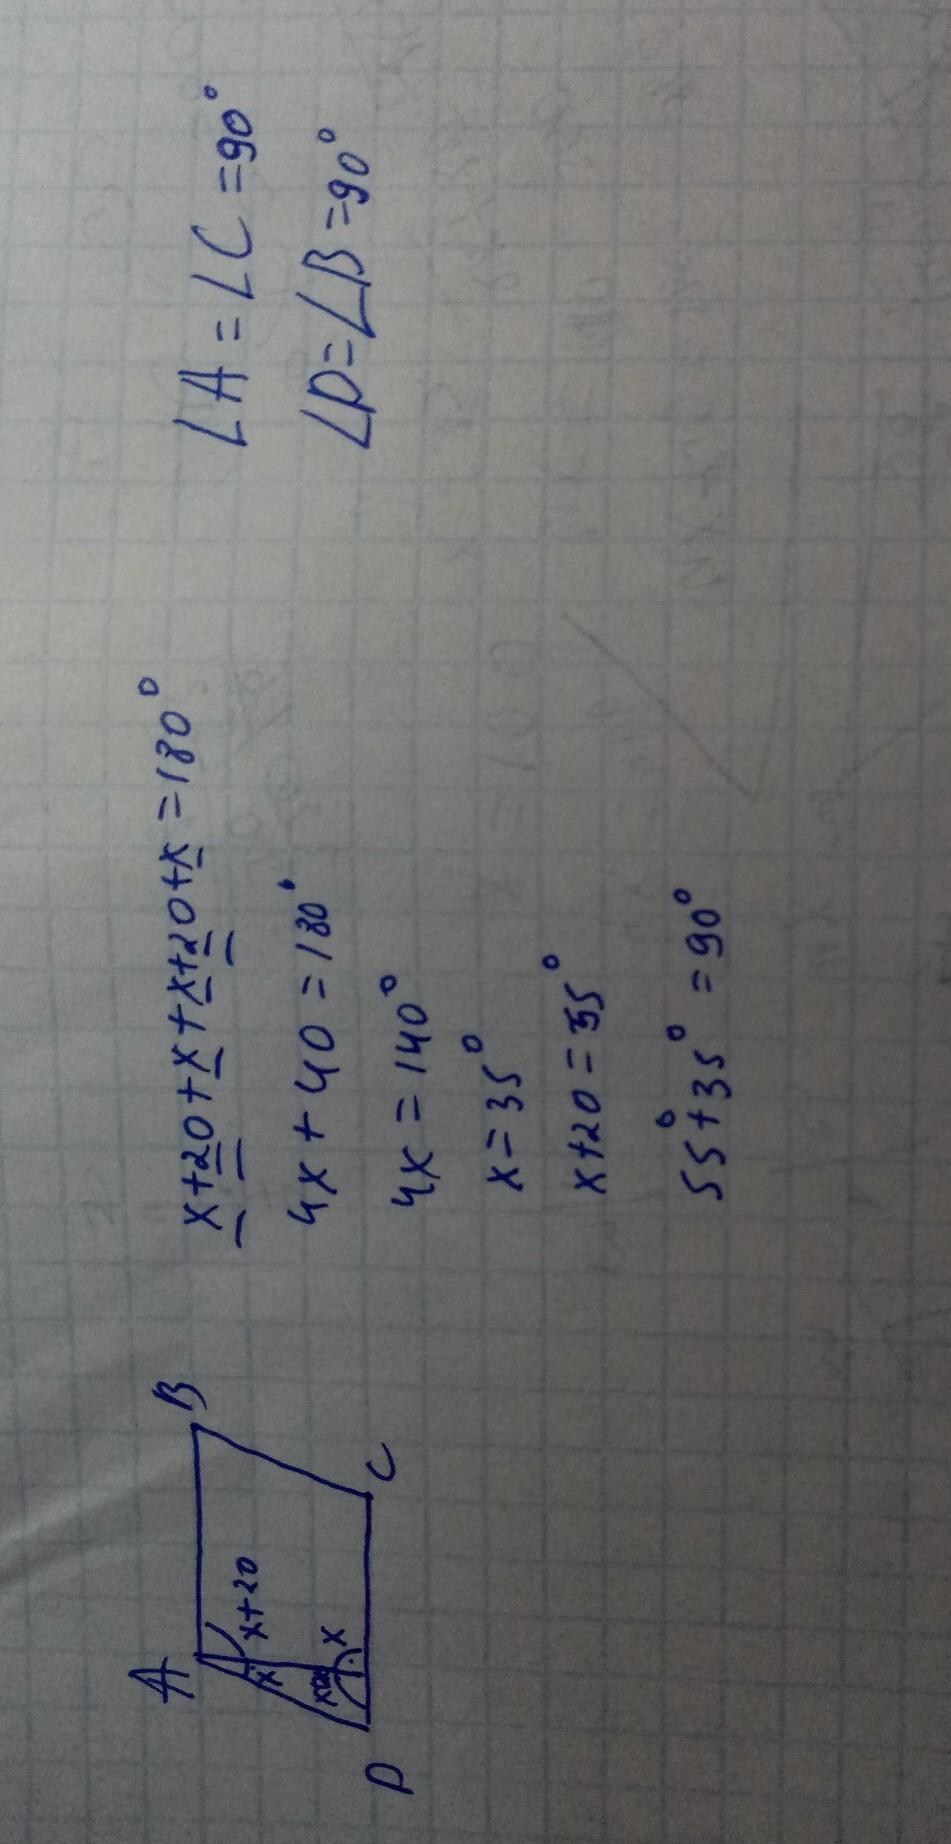 A
B
x+20
x
x+20
x
D
C
x+20+x+x+20+x=180°
4x+40=180°
4x=140°
x=35°
x+20=55°
55°+35°=90°
∠A=∠C=90°
∠D=∠B=90°